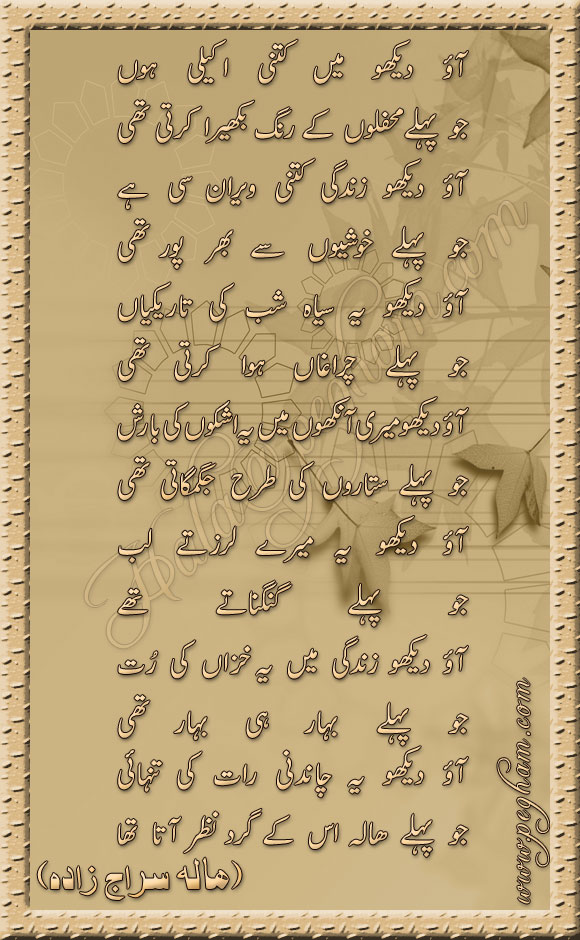 آؤ دیکھو میں کتنی اکیلی ہوں
جو پہلے محفلوں کے رنگ بکھیرا کرتی تھی
آؤ دیکھو زندگی کتنی ویران سی ہے
جو پہلے خوشیوں سے بھر پور تھی
آؤ دیکھو یہ سیاہ شب کی تاریکیاں
جو پہلے چراغاں ہوا کرتی تھی
آؤ دیکھو میری آنکھوں میں یہ اشکوں کی بارش
جو پہلے ستاروں کی طرح جگمگاتی تھی
آؤ دیکھو یہ میرے لرزتے لب
جو پہلے گنگناتے تھے
آؤ دیکھو زندگی میں یہ خزاں کی رُت
جو پہلے بہار ہی بہار تھی
آؤ دیکھو یہ چاندنی رات کی تنہائی
جو پہلے ھالہ اس کے گرد نظر آتا تھا
(ھاله سراج زاده)
www.pegham.com